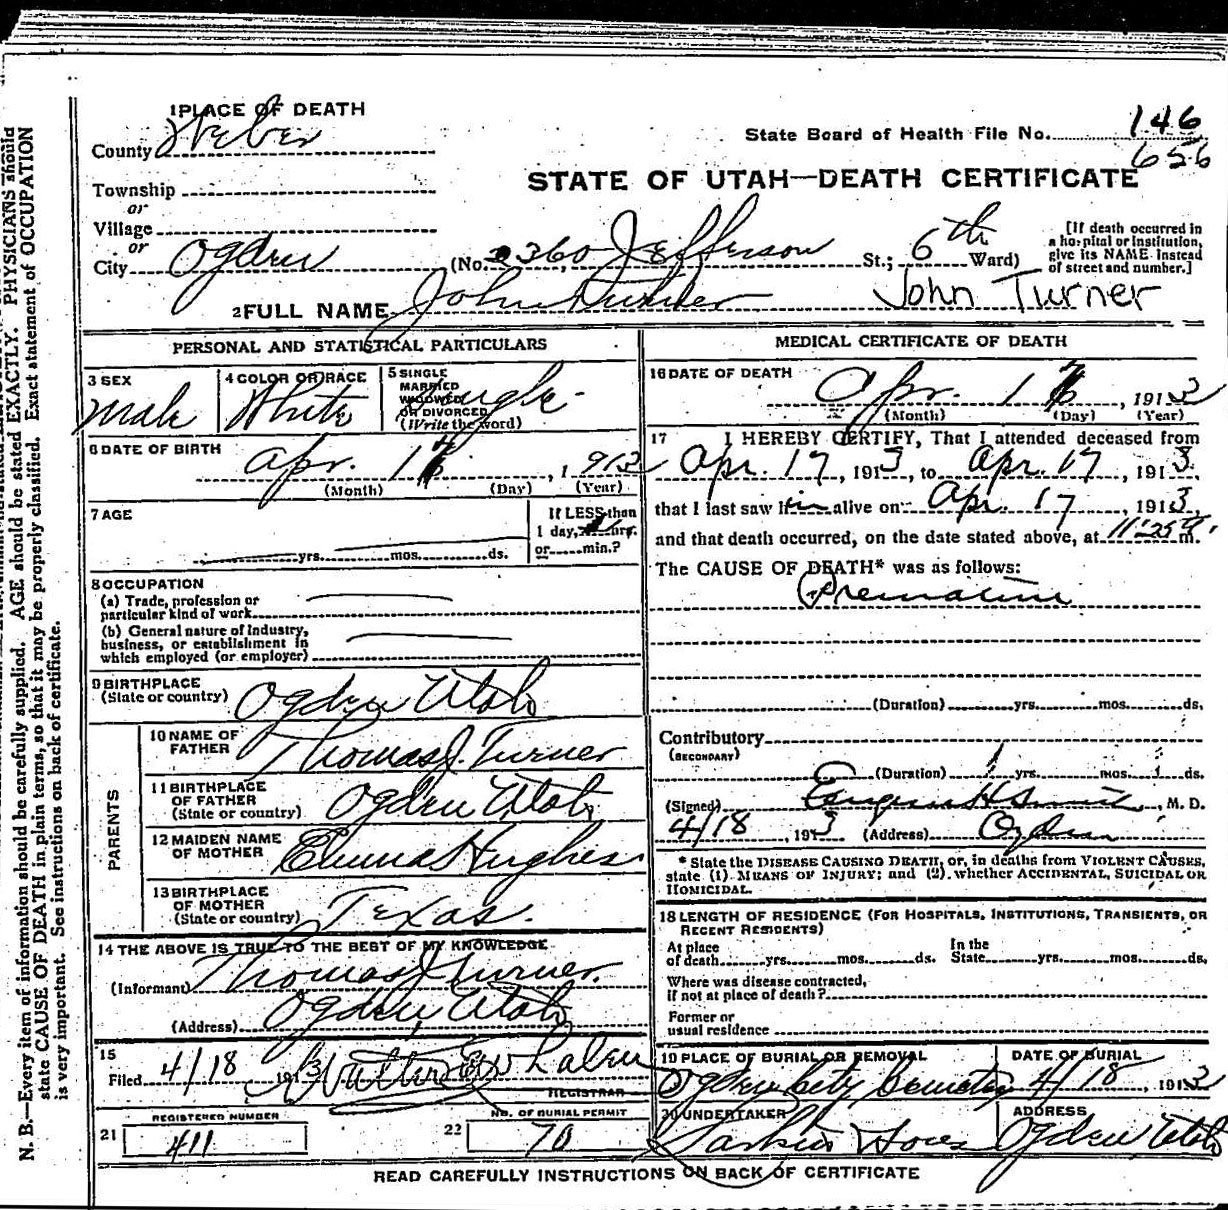 1 PLACE OF DEATH
County Weber
State Board of Health File No. 146
656
Township
or
STATE OF UTAH—DEATH CERTIFICATE
Village
or
City Ogden (No. 2360 Jefferson St.; 6th Ward)
[If death occurred in
a hospital or institution,
give its NAME instead
of street and number.]
2 FULL NAME John Turner John Turner
PERSONAL AND STATISTICAL PARTICULARS
3 SEX
Male
4 COLOR OR RACE
White
5 SINGLE
MARRIED
WIDOWED
OR DIVORCED
(Write the word)
Single
6 DATE OF BIRTH
Apr. 17, 1913
(Month) (Day) (Year)
7 AGE
yrs. mos. ds.
If LESS than
1 day, hrs.
or min.?
8 OCCUPATION
(a) Trade, profession or
particular kind of work
(b) General nature of industry,
business, or establishment in
which employed (or employer)
9 BIRTHPLACE
(State or country) Ogden Utah
PARENTS
10 NAME OF
FATHER Thomas J. Turner
11 BIRTHPLACE
OF FATHER
(State or country) Ogden Utah
12 MAIDEN NAME
OF MOTHER Emma Hughes
13 BIRTHPLACE
OF MOTHER
(State or country) Texas.
14 THE ABOVE IS TRUE TO THE BEST OF MY KNOWLEDGE
(Informant) Thomas J Turner.
(Address) Ogden, Utah
15
Filed 4/18 1913
REGISTRAR
REGISTERED NUMBER
21 411
NO. OF BURIAL PERMIT
22 70
MEDICAL CERTIFICATE OF DEATH
16 DATE OF DEATH
Apr. 17, 1913
(Month) (Day) (Year)
17 I HEREBY CERTIFY, That I attended deceased from
Apr. 17, 1913, to Apr. 17, 1913,
that I last saw him alive on Apr. 17, 1913,
and that death occurred, on the date stated above, at m.
The CAUSE OF DEATH* was as follows:
Premature
(Duration) yrs. mos. ds.
Contributory
(SECONDARY)
(Duration) yrs. mos. ds.
(Signed) Eugene H Smith, M. D.
4/18 1913 (Address) Ogden
* State the DISEASE CAUSING DEATH, or, in deaths from VIOLENT CAUSES,
state (1) MEANS OF INJURY; and (2) whether ACCIDENTAL, SUICIDAL OR
HOMICIDAL.
18 LENGTH OF RESIDENCE (FOR HOSPITALS, INSTITUTIONS, TRANSIENTS, OR
RECENT RESIDENTS)
At place
of death yrs. mos. ds.
In the
State yrs. mos. ds.
Where was disease contracted,
if not at place of death?
Former or
usual residence
19 PLACE OF BURIAL OR REMOVAL
Ogden City Cemetery
DATE OF BURIAL
4/18, 1913
20 UNDERTAKER
Larkin Sons
ADDRESS
Ogden Utah
READ CAREFULLY INSTRUCTIONS ON BACK OF CERTIFICATE
N. B.—Every item of information should be carefully supplied. AGE should be stated EXACTLY. PHYSICIANS should
state CAUSE OF DEATH in plain terms, so that it may be properly classified. Exact statement of OCCUPATION
is very important. See instructions on back of certificate.